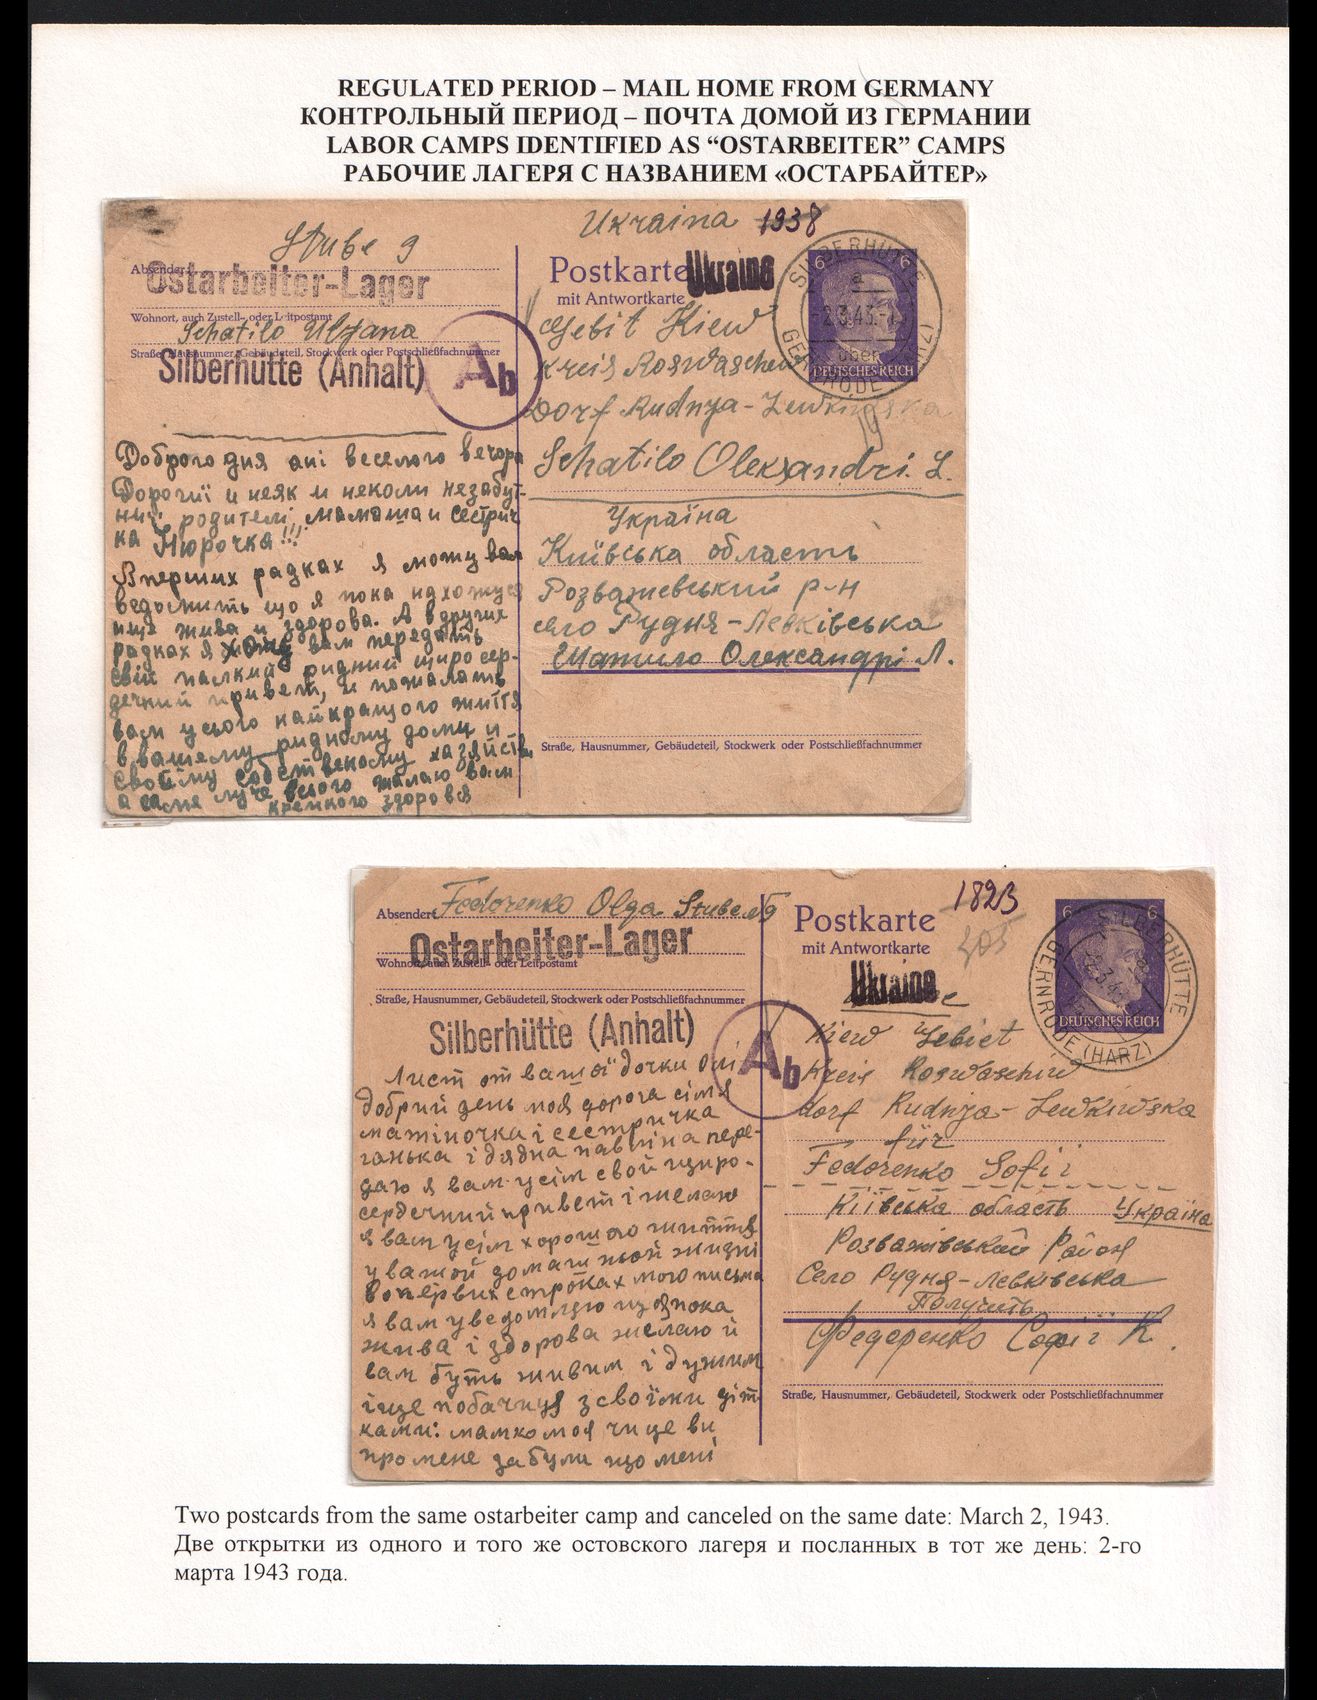 REGULATED PERIOD – MAIL HOME FROM GERMANY
КОНТРОЛЬНЫЙ ПЕРИОД – ПОЧТА ДОМОЙ ИЗ ГЕРМАНИИ
LABOR CAMPS IDENTIFIED AS “OSTARBEITER” CAMPS
РАБОЧИЕ ЛАГЕРЯ С НАЗВАНИЕМ «ОСТАРБАЙТЕР»
Stube 9
Absender:
Ostarbeiter-Lager
Wohnort, auch Zustell- oder Leitpostamt
Schatilo Uljana
Straße, Hausnummer, Gebäudeteil, Stockwerk oder Postschließfachnummer
Silberhütte (Anhalt)
Ab
Доброго дня або веселого вечора
Дорогиї и неяк и неколи незабут-
ниї родителі, мамаша и сестрич
ка Нюрочка!!!
Вперших радках я можу вам
ведомить що я пока нахожуся
ище жива и здорова. А вдругих
радках я хочу вам передать
свій палкий ридний щиросер-
дечний привет, и пожалать
вам усього найкращого життя
в вашему ридному доми и
своїму собственому хазяйстві
а самe луче всього жалаю вам
крепкого здоровя
Ukraina 1938
Postkarte
Ukraine
mit Antwortkarte
Gebit Kiew
Kreis Roswaschew
Dorf Rudnja-Lewkiwska
Schatilo Oleksandri. L.
Україна
Київська область
Розважевський р-н
село Рудня-Левківська
Шатило Олександрі Л.
Straße, Hausnummer, Gebäudeteil, Stockwerk oder Postschließfachnummer
6 6
SILBERHÜTTE
a
-2.3.43.-
über
GERNRODE (HARZ)
DEUTSCHES REICH
Absender: Fedorenko Olga Stube 9
Ostarbeiter-Lager
Wohnort, auch Zustell- oder Leitpostamt
Straße, Hausnummer, Gebäudeteil, Stockwerk oder Postschließfachnummer
Silberhütte (Anhalt)
Ab
Лист от вашої дочки Олі
добрий день моя дорога сімя
матіночка і сестричка
ганька і дядна павліна пере-
даю я вам усім свой щиро-
сердечний привет і желаю
я вам усім хорошого життя
у вашой домашньой жизні
Вопервих строках мого письма
я вам уведомляю що я пока
жива і здорова желаю й
вам буть живим і дужим
і ще побачиця з своїми діт
ками: мамко моя чи це ви
про мене забули що мені
1823
Postkarte
mit Antwortkarte
305
Ukraine
Kiew Gebiet
Kreis Roswaschiw
dorf Rudnja-Lewkiwska
für
Fedorenko Sofiї
Київська область Україна
Розважівський Район
Село Рудня-Левківська
Получить
Федеренко Софії К.
Straße, Hausnummer, Gebäudeteil, Stockwerk oder Postschließfachnummer
6 6
SILBERHÜTTE
GERNRODE (HARZ)
DEUTSCHES REICH
Two postcards from the same ostarbeiter camp and canceled on the same date: March 2, 1943.
Две открытки из одного и того же остовского лагеря и посланных в тот же день: 2-го
марта 1943 года.